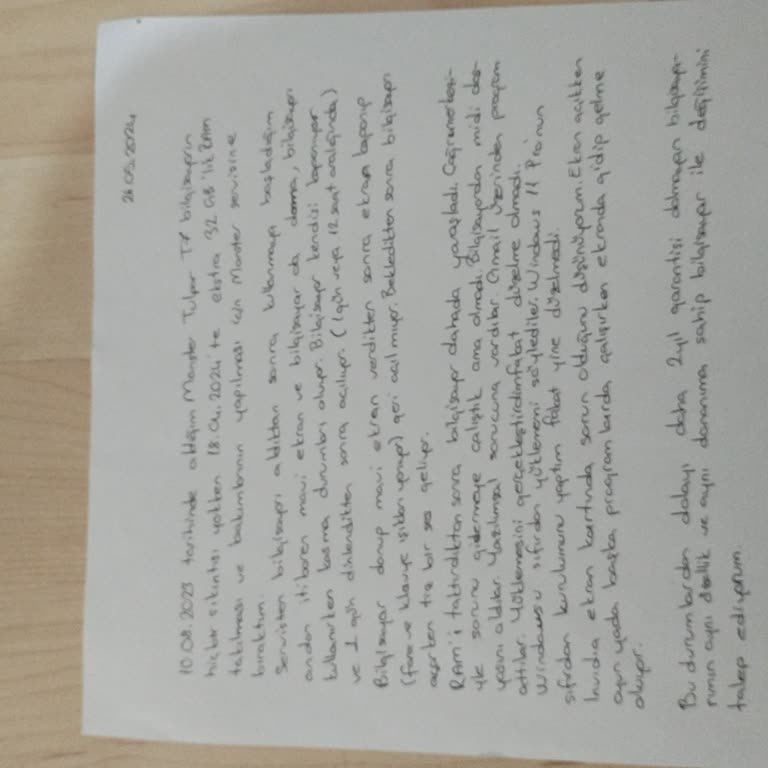 26.05.2024
10.08.2023 tarihinde aldığım Monster Tulpar T7 bilgisayarın
hiçbir sıkıntısı yokken 18.04.2024'te ekstra 32 GB'lık RAM
takılması ve bakımlarının yapılması için Monster servisine
bıraktım.
Servisten bilgisayarı aldıktan sonra kullanmaya başladığım
andan itibaren mavi ekran ve bilgisayar da donma, bilgisayarı
kullanırken kasma durumları oluyor. Bilgisayar kendisi kapanıyor
ve 1 gün dinlendikten sonra açılıyor. (1 gün veya 12 saat aralığında)
Bilgisayar donup mavi ekran verdikten sonra ekran kapanıp
(fare ve klavye ışıkları yanıyor) geri açılmıyor. Bekledikten sonra bilgisayarı
açarken tiz bir ses geliyor.
RAM'i taktırdıktan sonra bilgisayar dahada yavaşladı. Çağrı merkezi-
yle sorunu gidermeye çalıştık ama olmadı. Bilgisayardan midi dos-
yasını aldılar. Yazılımsal sonucuna vardılar. Gmail üzerinden program
attılar. Yüklemesini gerçekleştirdim fakat düzelme olmadı.
Windowsu sıfırdan yüklememi söylediler. Windows 11 Pro'nun
sıfırdan kurulumunu yaptım fakat yine düzelmedi.
Invidia ekran kartında sorun olduğunu düşünüyorum. Ekran açıkken
oyun yada başka program larda çalışırken ekranda gidip gelme
oluyor.
Bu durumlardan dolayı daha 2 yıl garantisi dolmayan bilgisaya-
rımın aynı özellik ve aynı donanıma sahip bilgisayar ile değişimini
talep ediyorum.